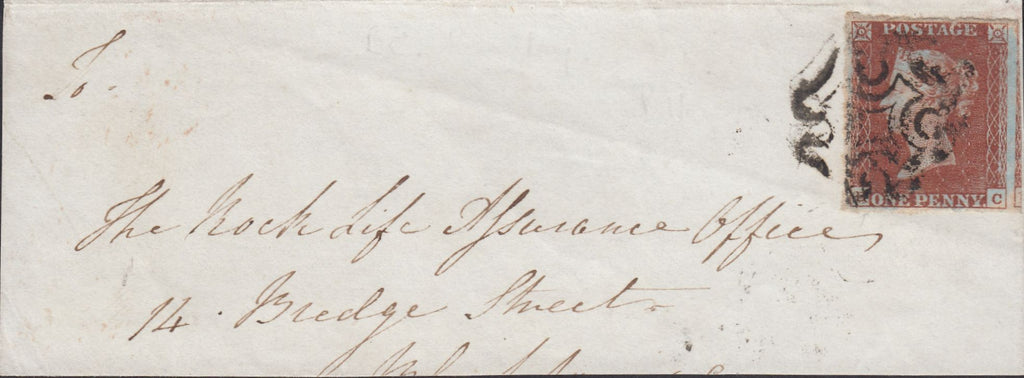 To
The Rock Life Assurance Office,
14. Bridge Street
POSTAGE
ONE PENNY C